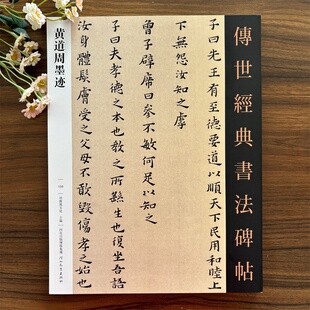 傳世經典書法碑帖
子曰先王有至德要道以順天下民用和睦上
下無怨汝知之虖
曾子辟席曰參不敏何足以知之
子曰夫孝德之本也教之所繇生也復坐吾語
汝身體髮膚受之父母不敢毀傷孝之始也
黄道周墨迹